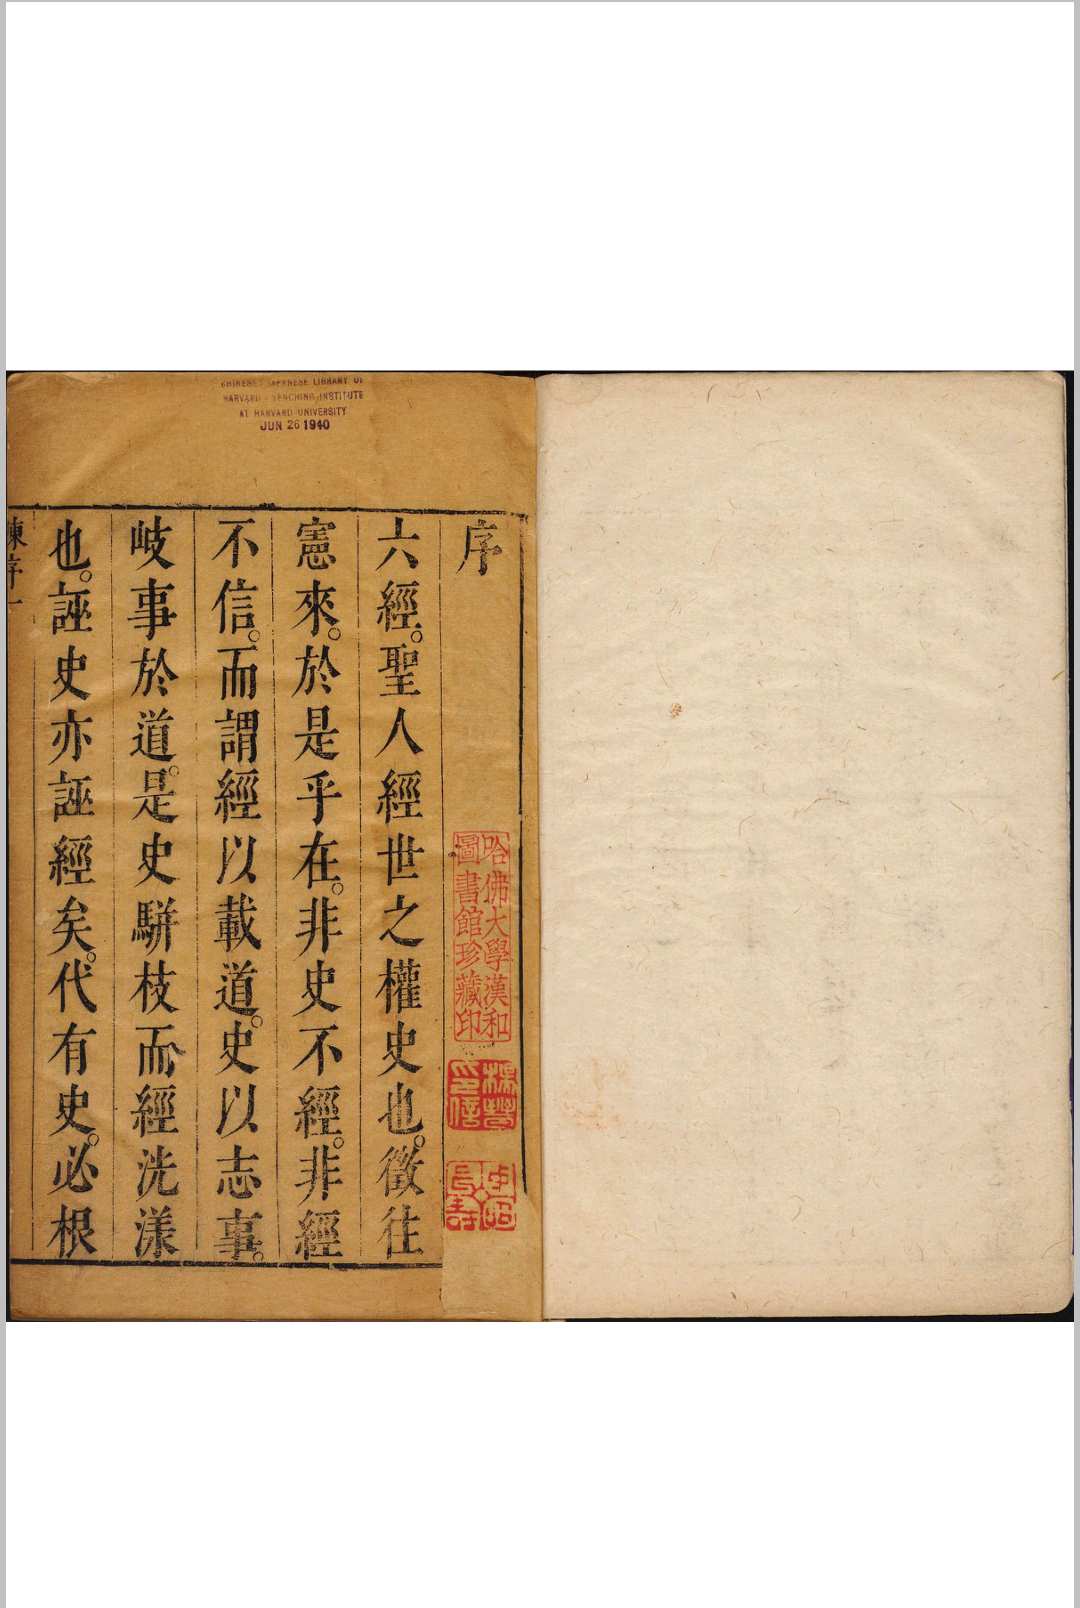 CHINESE-JAPANESE LIBRARY OF
HARVARD-YENCHING INSTITUTE
AT HARVARD UNIVERSITY
JUN 26 1940
序
六經。聖人經世之權史也。徵往
憲來。於是乎在。非史不經。非經
不信。而謂經以載道。史以志事。
岐事於道。是史駢枝而經洸漾
也。誣史亦誣經矣。代有史。必根
陳序一
哈佛大學漢和
圖書館珍藏印